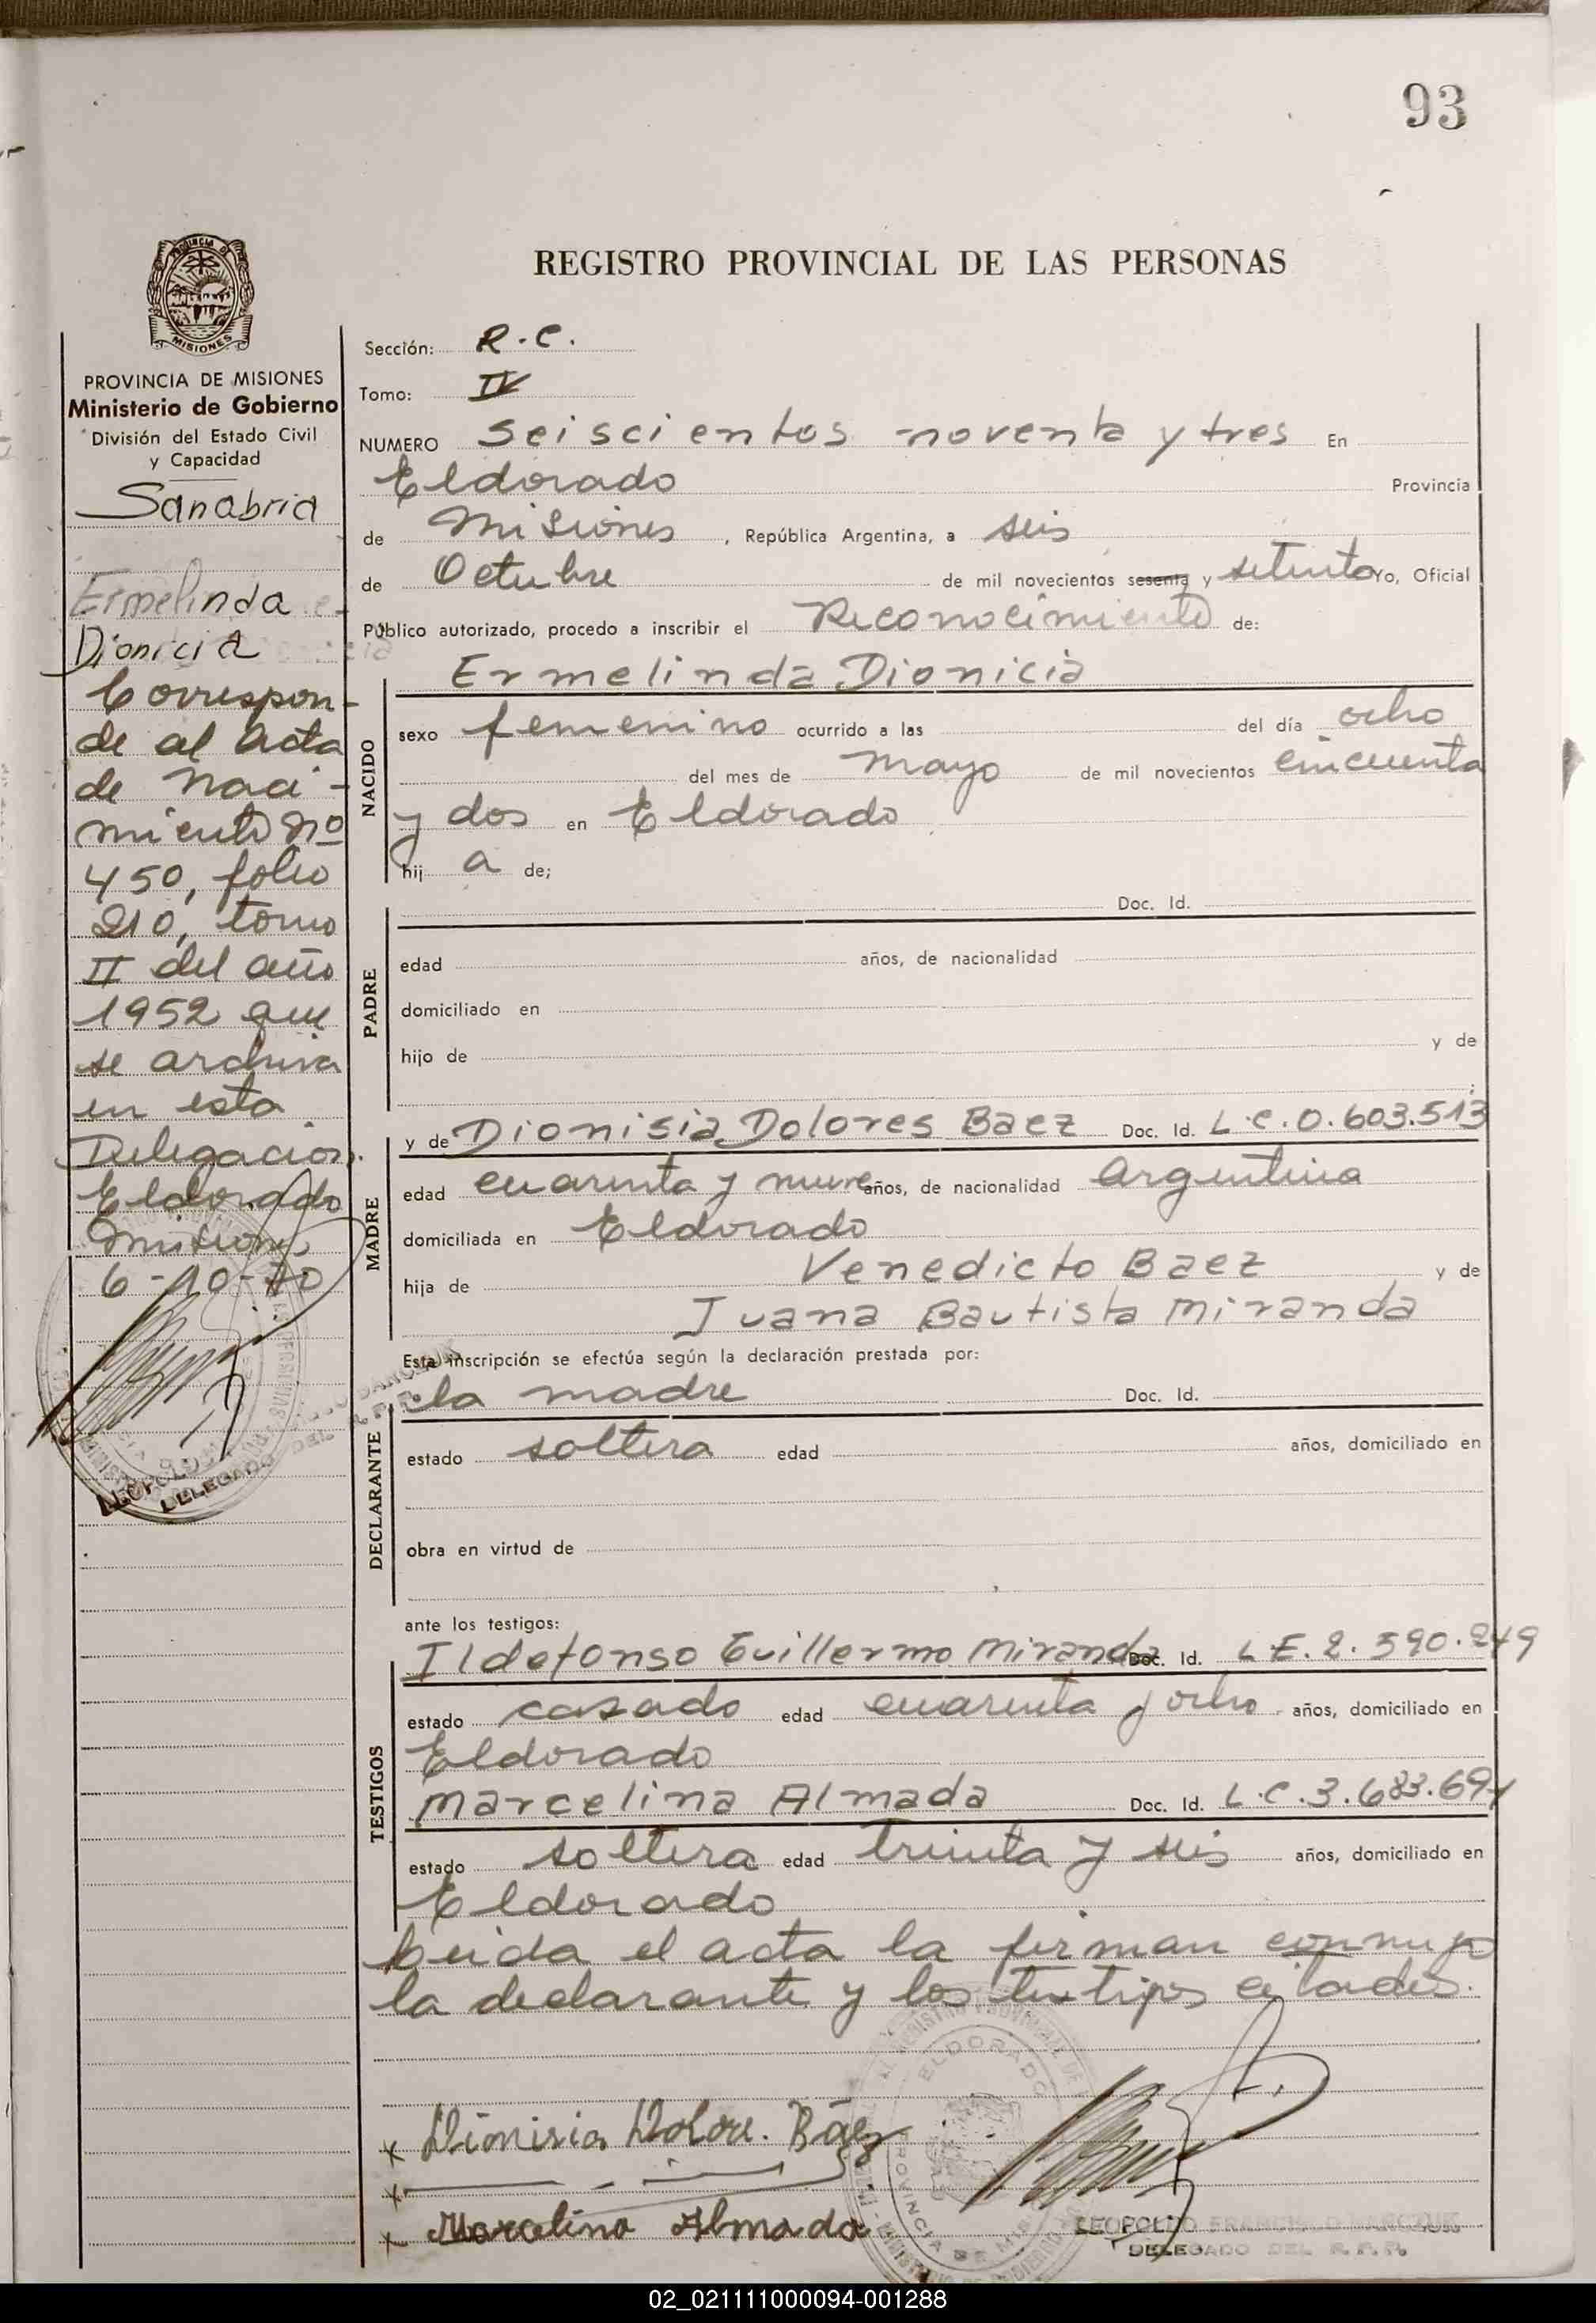 93
REGISTRO PROVINCIAL DE LAS PERSONAS
PROVINCIA DE MISIONES
Ministerio de Gobierno
División del Estado Civil
y Capacidad
Sanabria
Ermelinda
Dionicia
Correspon-
de al Acta
de Naci-
miento Nº
450, folio
210, tomo
II del año
1952 que
se archiva
en esta
Delegación.
Eldorado
Misiones
6-10-70
Sección: R.C.
Tomo: IV
NUMERO seiscientos noventa y tres En
Eldorado Provincia
de Misiones, República Argentina, a seis
de Octubre de mil novecientos sesenta y setenta Yo, Oficial
Público autorizado, procedo a inscribir el Reconocimiento de:
Ermelinda Dionicia
NACIDO
sexo femenino ocurrido a las del día ocho
del mes de mayo de mil novecientos cincuenta
y dos en Eldorado
hij a de;
Doc. Id.
PADRE
edad años, de nacionalidad
domiciliado en
hijo de y de
y de Dionisia Dolores Baez Doc. Id. L.C.0.603.513
MADRE
edad cuarenta y nueve años, de nacionalidad Argentina
domiciliada en Eldorado
hija de Venedicto Baez y de
Juana Bautista Miranda
Esta inscripción se efectúa según la declaración prestada por:
la madre Doc. Id.
DECLARANTE
estado soltera edad años, domiciliado en
obra en virtud de
ante los testigos:
Ildefonso Guillermo Miranda Doc. Id. L.E.2.590.249
TESTIGOS
estado casado edad cuarenta y ocho años, domiciliado en
Eldorado
Marcelina Almada Doc. Id. L.C.3.683.691
estado soltera edad treinta y seis años, domiciliado en
Eldorado
Leida el acta la firman conmigo
la declarante y los testigos citados.
x Dionisia Dolore. Báez
x
x Marcelina Almada
LEOPOLDO
DELEGADO DEL R.P.P.
02_021111000094-001288